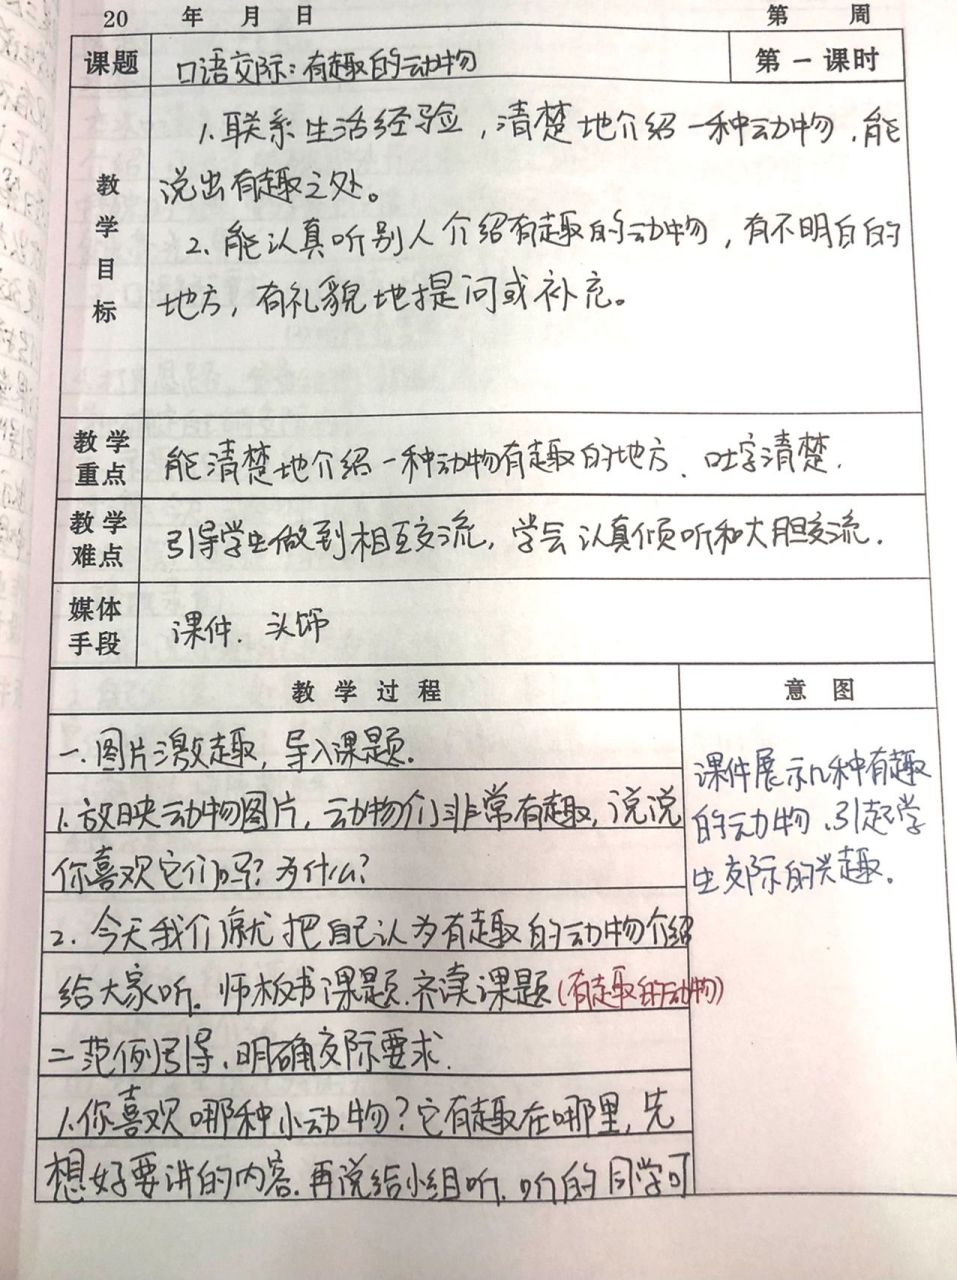 20 年 月 日 第 周
课题 口语交际:有趣的动物 第一课时
教学目标
1.联系生活经验,清楚地介绍一种动物,能
说出有趣之处。
2.能认真听别人介绍有趣的动物,有不明白的
地方,有礼貌地提问或补充。
教学重点 能清楚地介绍一种动物有趣的地方、吐字清楚.
教学难点 引导学生做到相互交流,学会认真倾听和大胆交流.
媒体手段 课件.头饰
教学过程 意图
一.图片激趣,导入课题。
1.放映动物图片,动物们非常有趣,说说
你喜欢它们吗?为什么?
2.今天我们就把自己认为有趣的动物介绍
给大家听。师板书课题.齐读课题(有趣的动物)
二范例引导、明确交际要求.
1.你喜欢哪种小动物?它有趣在哪里,先
想好要讲的内容.再说给小组听.听的同学可
课件展示几种有趣
的动物.引起学
生交际的兴趣.